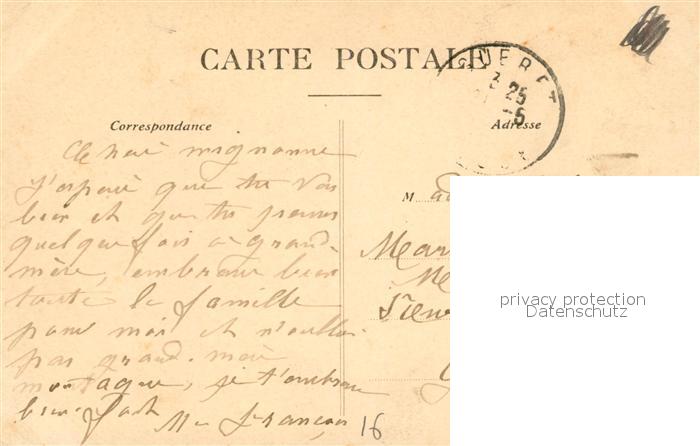 CARTE POSTALE
GUERET
3 25
-5
Correspondance
Adresse
Chère mignonne
J'espère que tu vas
bien et que tu penses
quelque fois a grand-
mère, embrasse bien
toute la famille
pour moi et n'oublie
pas grand-mère
montaque, je t'embrasse
bien fort
Me François
16
M
Mar
privacy protection
Datenschutz